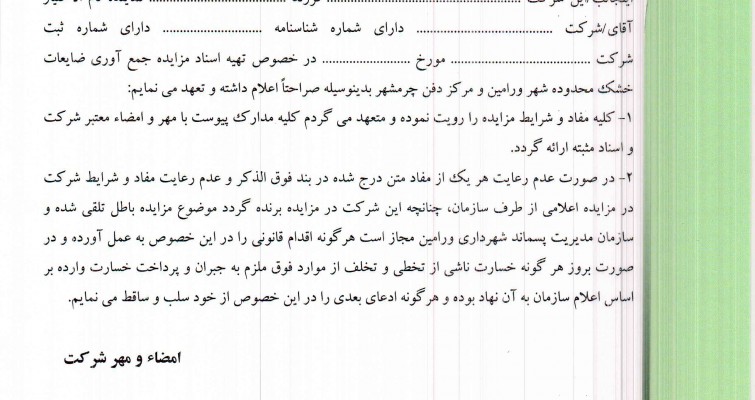 اینجانب/این شرکت ........................................
آقای/شرکت ........................................ دارای شماره شناسنامه ........................ دارای شماره ثبت
شرکت ........................................ مورخ ........................ در خصوص تهیه اسناد مزایده جمع آوری ضایعات
خشک محدوده شهر ورامین و مرکز دفن چرمشهر بدینوسیله صراحتاً اعلام داشته و تعهد می نمایم:
۱- کلیه مفاد و شرایط مزایده را رویت نموده و متعهد می گردم کلیه مدارک پیوست با مهر و امضاء معتبر شرکت
و اسناد مثبته ارائه گردد.
۲- در صورت عدم رعایت هر یک از مفاد متن درج شده در بند فوق الذکر و عدم رعایت مفاد و شرایط شرکت
در مزایده اعلامی از طرف سازمان، چنانچه این شرکت در مزایده برنده گردد موضوع مزایده باطل تلقی شده و
سازمان مدیریت پسماند شهرداری ورامین مجاز است هرگونه اقدام قانونی را در این خصوص به عمل آورده و در
صورت بروز هر گونه خسارت ناشی از تخطی و تخلف از موارد فوق ملزم به جبران و پرداخت خسارت وارده بر
اساس اعلام سازمان به آن نهاد بوده و هرگونه ادعای بعدی را در این خصوص از خود سلب و ساقط می نمایم.
امضاء و مهر شرکت